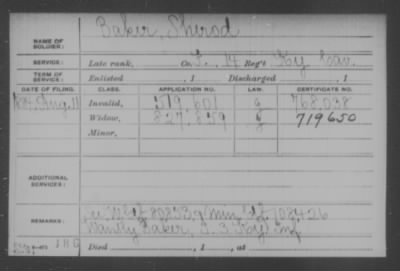 Baker, Sherod
NAME OF SOLDIER:
SERVICE: Late rank, Co. I. 14 Reg't Ky Cav.
TERM OF SERVICE: Enlisted , 1 Discharged , 1
DATE OF FILING. CLASS. APPLICATION NO. LAW. CERTIFICATE NO.
Aug. 11 Invalid, 519,601 768,038
Widow, 827,859 719650
Minor,
ADDITIONAL SERVICES:
REMARKS:
Baker, 3 Ky Inf
Died , 1 , at